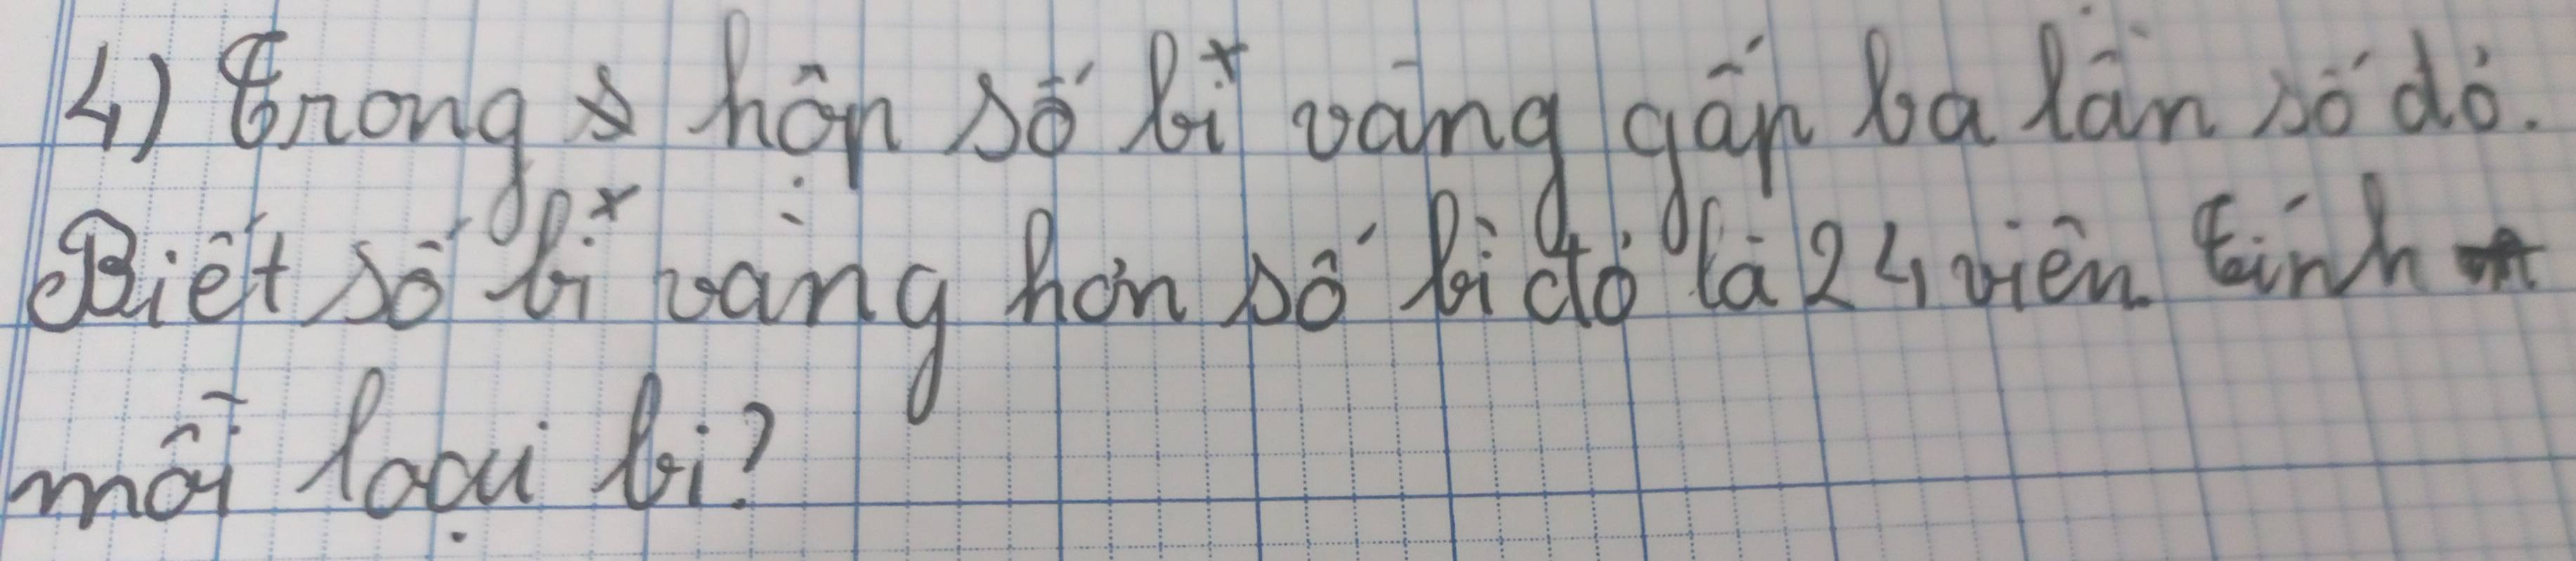 4) Trong hộp số bi vàng gấp ba lần số đỏ.
Biết số bi vàng hơn số bi đỏ là 24 viên. Tính
mỗi loại bi?